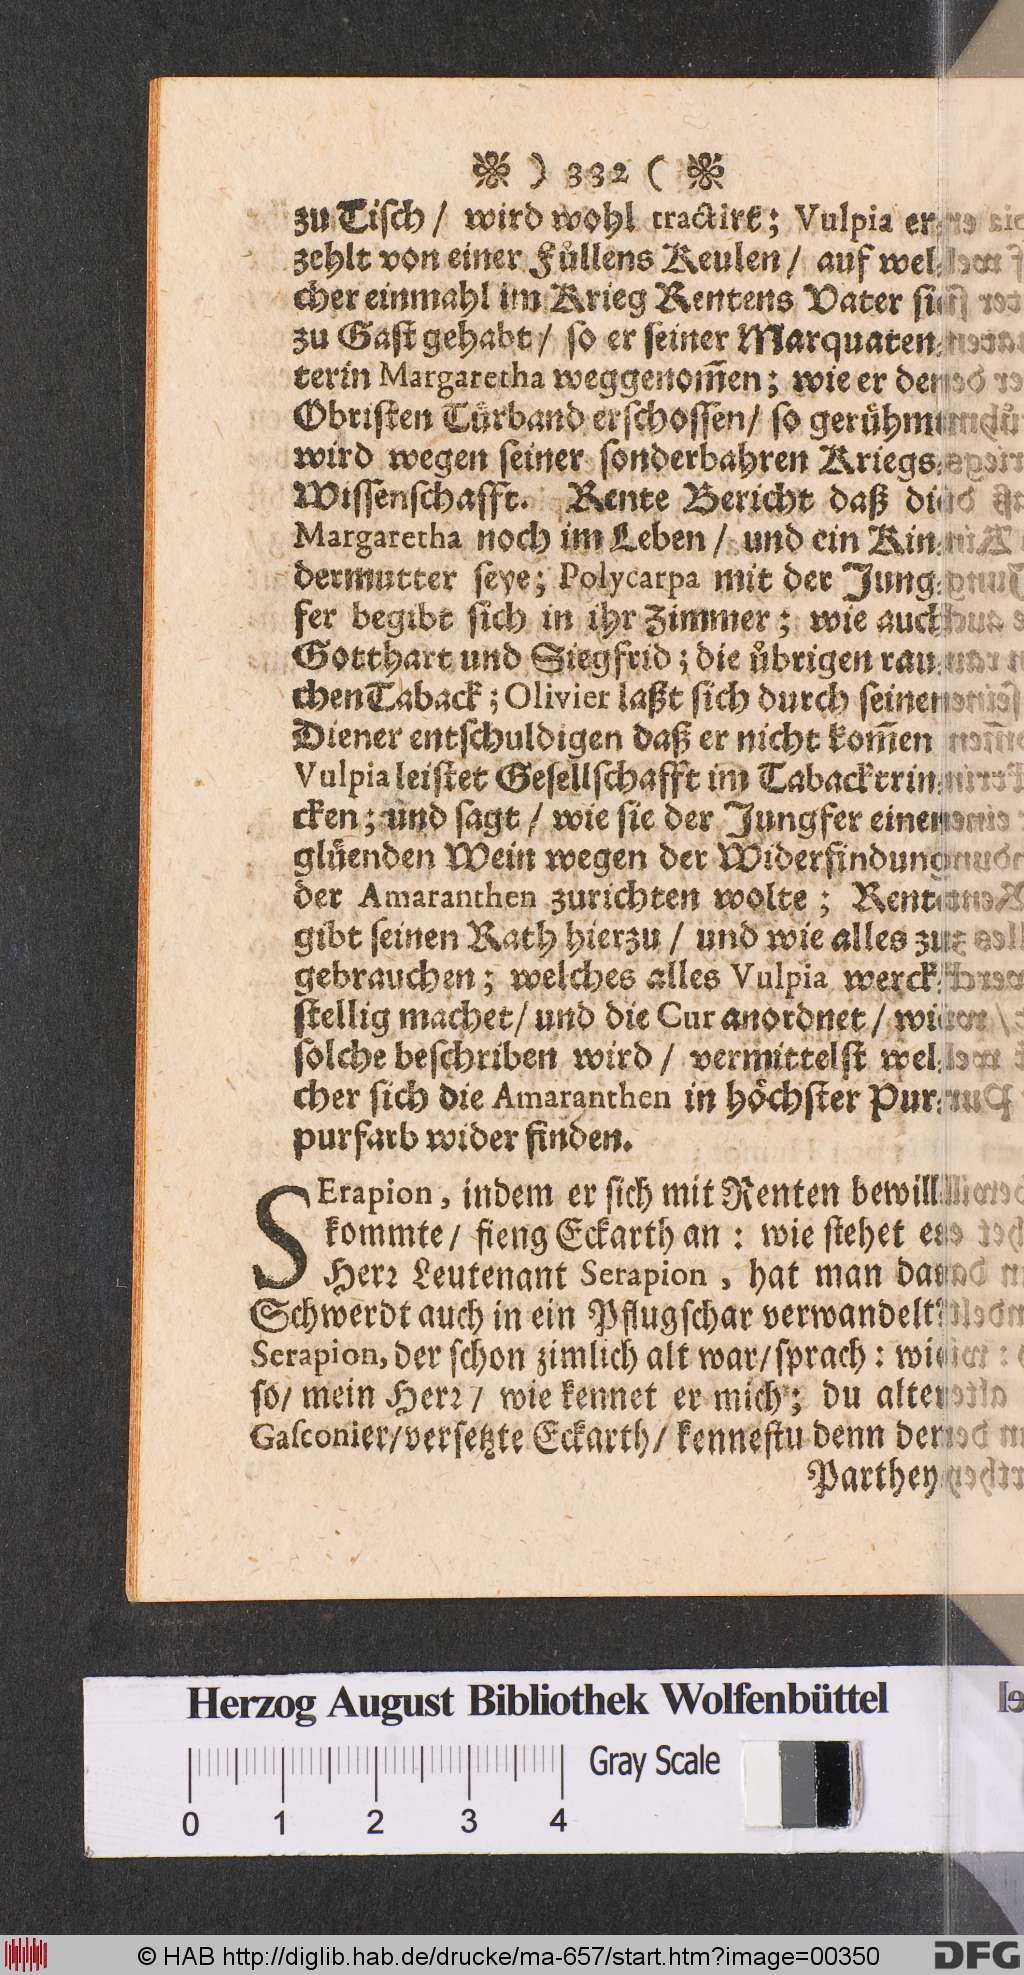 ❀ ) 332 ( ❀
zu Tisch / wird wohl tractirt; Vulpia er-
zehlt von einer Fuͤllens Keulen / auf wel-
cher einmahl im Krieg Rentens Vater sie
zu Gast gehabt / so er seiner Marquaten-
terin Margaretha weggenom̃en; wie er den
Obristen Tuͤrband erschossen / so geruͤhmt
wird wegen seiner sonderbahren Kriegs-
Wissenschafft. Rente Bericht daß die
Margaretha noch im Leben / und ein Kin-
dermutter seye; Polycarpa mit der Jung-
fer begibt sich in ihr Zimmer; wie auch
Gotthart und Siegfrid; die uͤbrigen rau-
chen Taback; Olivier laßt sich durch seinen
Diener entschuldigen daß er nicht kom̃en
Vulpia leistet Gesellschafft im Tabacktrin-
cken; und sagt / wie sie der Jungfer einen
gluͤenden Wein wegen der Widerfindung
der Amaranthen zurichten wolte; Rente
gibt seinen Rath hierzu / und wie alles zu
gebrauchen; welches alles Vulpia werck-
stellig machet / und die Cur anordnet / wie
solche beschriben wird / vermittelst wel-
cher sich die Amaranthen in hoͤchster Pur-
purfarb wider finden.
SErapion, indem er sich mit Renten bewill-
kommte / fieng Eckarth an: wie stehet es
Herꝛ Leutenant Serapion, hat man das
Schwerdt auch in ein Pflugschar verwandelt?
Serapion, der schon zimlich alt war / sprach: wie
so / mein Herꝛ / wie kennet er mich; du alter
Gasconier / versetzte Eckarth / kennestu denn den
Parthey-
Herzog August Bibliothek Wolfenbüttel
Gray Scale
0 1 2 3 4
© HAB http://diglib.hab.de/drucke/ma-657/start.htm?image=00350
DFG